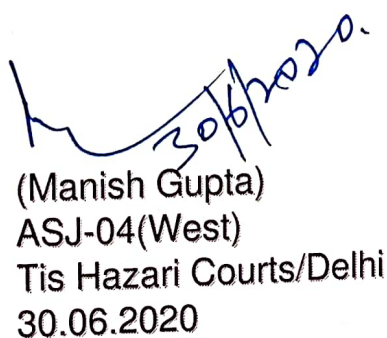 30/6/2020.
(Manish Gupta)
ASJ-04(West)
Tis Hazari Courts/Delhi
30.06.2020